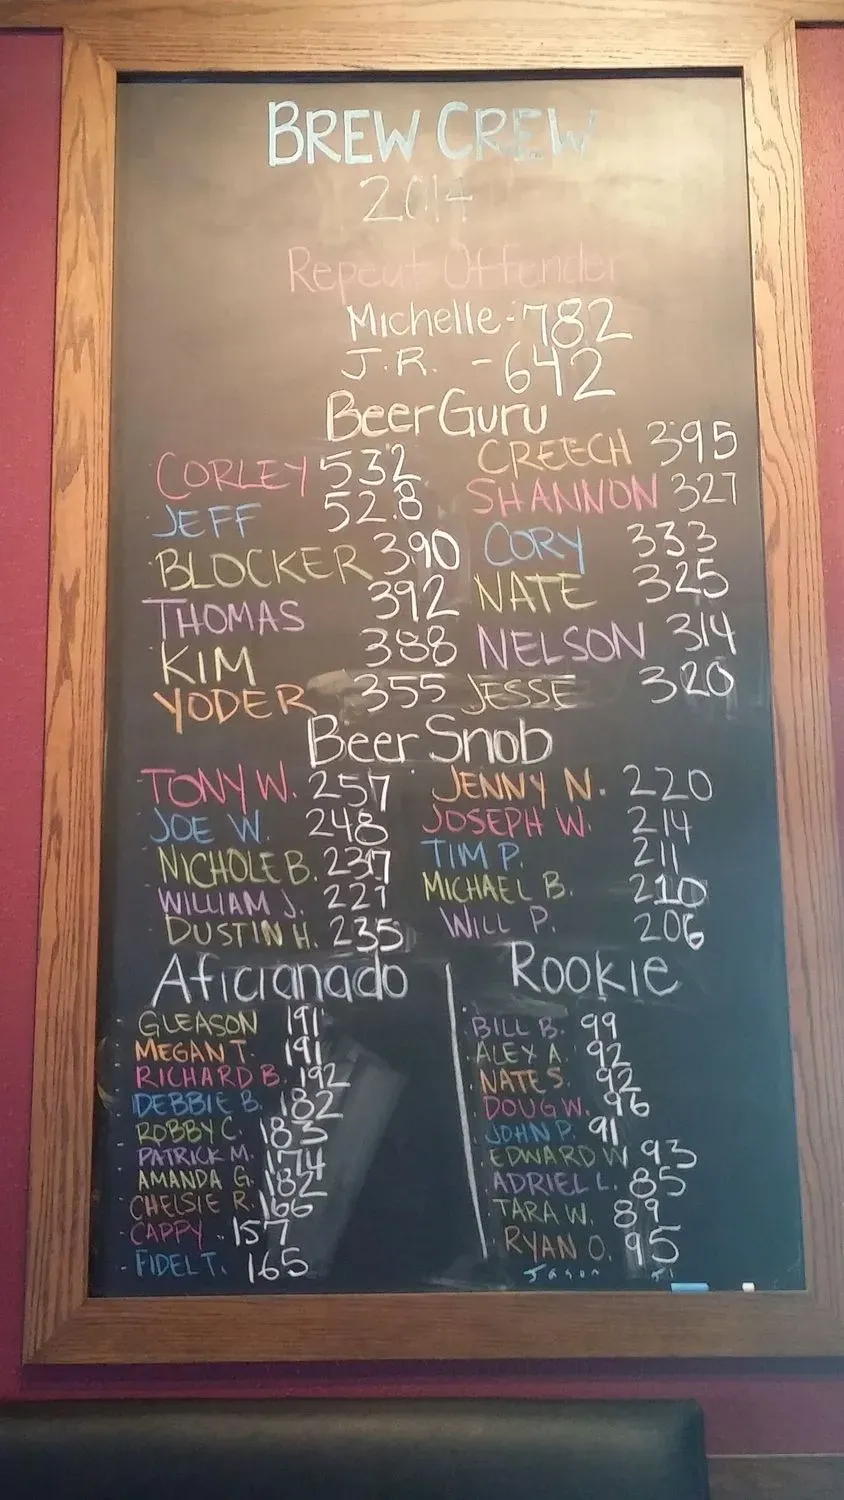 BREW CREW
2014
Repeat Offender
Michelle - 782
J.R. - 642
Beer Guru
CORLEY 532 CREECH 395
JEFF 528 SHANNON 327
BLOCKER 390 CORY 333
THOMAS 392 NATE 325
KIM 388 NELSON 314
YODER 355 JESSE 320
Beer Snob
TONY W. 257 JENNY N. 220
JOE W. 248 JOSEPH W. 214
NICHOLE B. 237 TIM P. 211
WILLIAM J. 221 MICHAEL B. 210
DUSTIN H. 235 WILL P. 206
Aficianado
GLEASON 191
MEGAN T. 191
RICHARD B. 192
DEBBIE B. 182
ROBBY C. 183
PATRICK M. 174
AMANDA G. 182
CHELSIE R. 166
CAPPY 157
FIDEL T. 165
Rookie
BILL B. 99
ALEX A. 92
NATE S. 92
DOUG W. 96
JOHN P. 91
EDWARD W 93
ADRIEL L. 85
TARA W. 89
RYAN O. 95
Jason